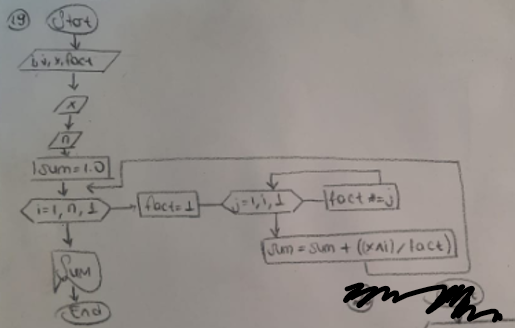 19
Start
i, j, x, fact
x
n
sum=1.0
i=1, n, 1
fact=1
j=1, i, 1
fact *=j
sum = sum + ((x^i)/fact)
Sum
End